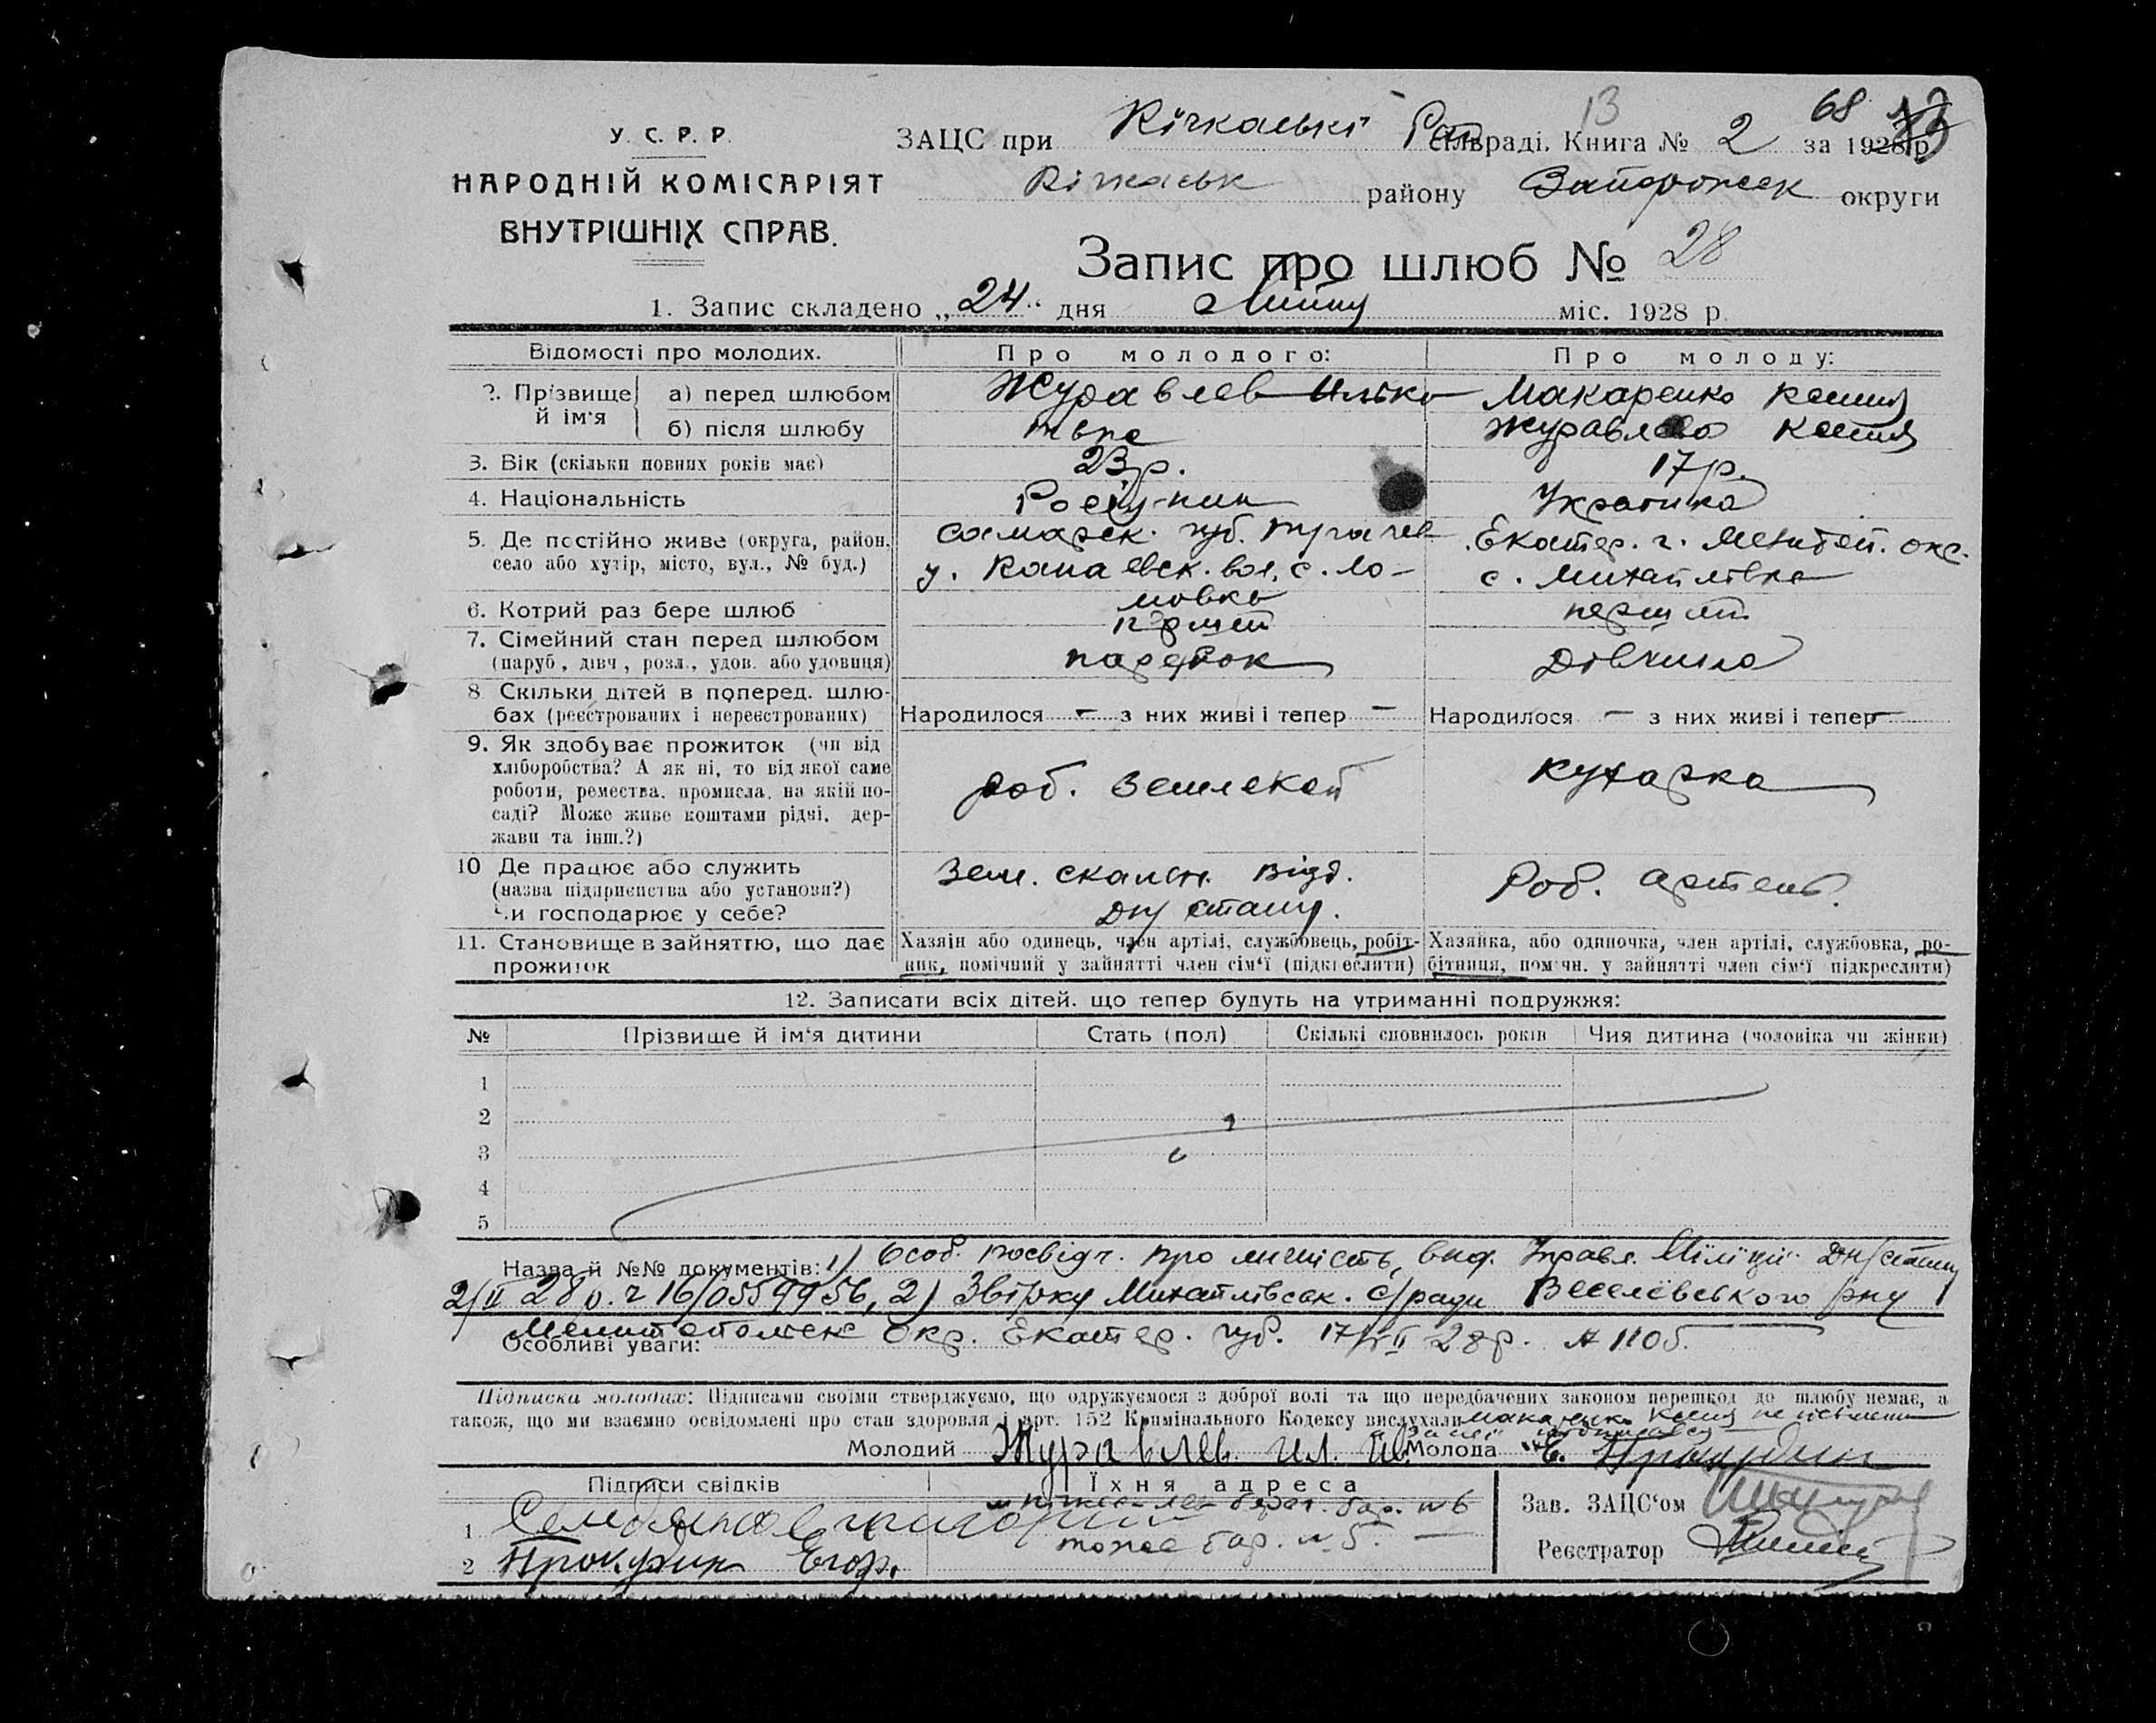 У. С. Р. Р.
НАРОДНІЙ КОМІСАРІЯТ
ВНУТРІШНІХ СПРАВ.
13 68
ЗАЦС при Кічкаські Рай сільраді. Книга № 2 за 1928 р.
Кічкаськ району Запорожск округи
Запис про шлюб № 28
1. Запис складено „24" дня міс. 1928 р.
Відомості про молодих. Про молодого: Про молоду:
2. Прізвище й ім'я а) перед шлюбом Журавлев Илько Макаренко Ксения
б) після шлюбу Журавлева Ксения
3. Вік (скільки повних років має) 23 р. 17 р.
4. Національність Українка
5. Де постійно живе (округа, район, село або хутір, місто, вул., № буд.) Самарск. губ. Пугачев у. Канаевск. вол. с. Ломовка Екатер. г. Мелитоп. окр. с. Михайлівка
6. Котрий раз бере шлюб перший перший
7. Сімейний стан перед шлюбом (паруб., дівч., розл., удов. або удовиця) парубок Дівчина
8. Скільки дітей в поперед. шлюбах (реєстрованих і нереєстрованих) Народилося — з них живі і тепер — Народилося — з них живі і тепер —
9. Як здобуває прожиток (чи від хліборобства? А як ні, то від якої саме роботи, ремества, промисла, на якій посаді? Може живе коштами рідні, держави та інш.?) роб. Землекоп Кухарка
10 Де працює або служить (назва підприємства або установи?) Чи господарює у себе? Зем. скальн. відд. Роб. артель.
11. Становище в зайняттю, що дає прожиток Хазяїн або одинець, член артілі, службовець, робітник, помічний у зайнятті член сім'ї (підкреслити) Хазяйка, або одиночка, член артілі, службовка, робітниця, помічн. у зайнятті член сім'ї підкреслити)
12. Записати всіх дітей, що тепер будуть на утриманні подружжя:
№ Прізвище й ім'я дитини Стать (пол) Скількі сповнилось років Чия дитина (чоловіка чи жінки)
1
2
3
4
5
Назва й №№ документів: 1) Особ. посвідч. про личність, вид. Управл. Міліції
28 р. ч 16/0559956, 2) Звірку Михайлівськ. с/ради Веселівського р-ну
Мелитопольск Окр. Екатер. губ. 28 р. № 1105.
Особливі уваги:
Підписка молодих: Підписами своїми стверджуємо, що одружуємося з доброї волі та що передбачених законом перешкод до шлюбу немає, а
також, що ми взаємно освідомлені про стан здоровля і арт. 152 Кримінального Кодексу вислухали Макаренко Ксения
Молодий Журавлев Ил. Ив. Молода Прокудин
Підписи свідків Їхня адреса
1 берег. бар. № 6
2 Прокудин Егор. тоже бар. № 5. —
Зав. ЗАЦС'ом
Реєстратор